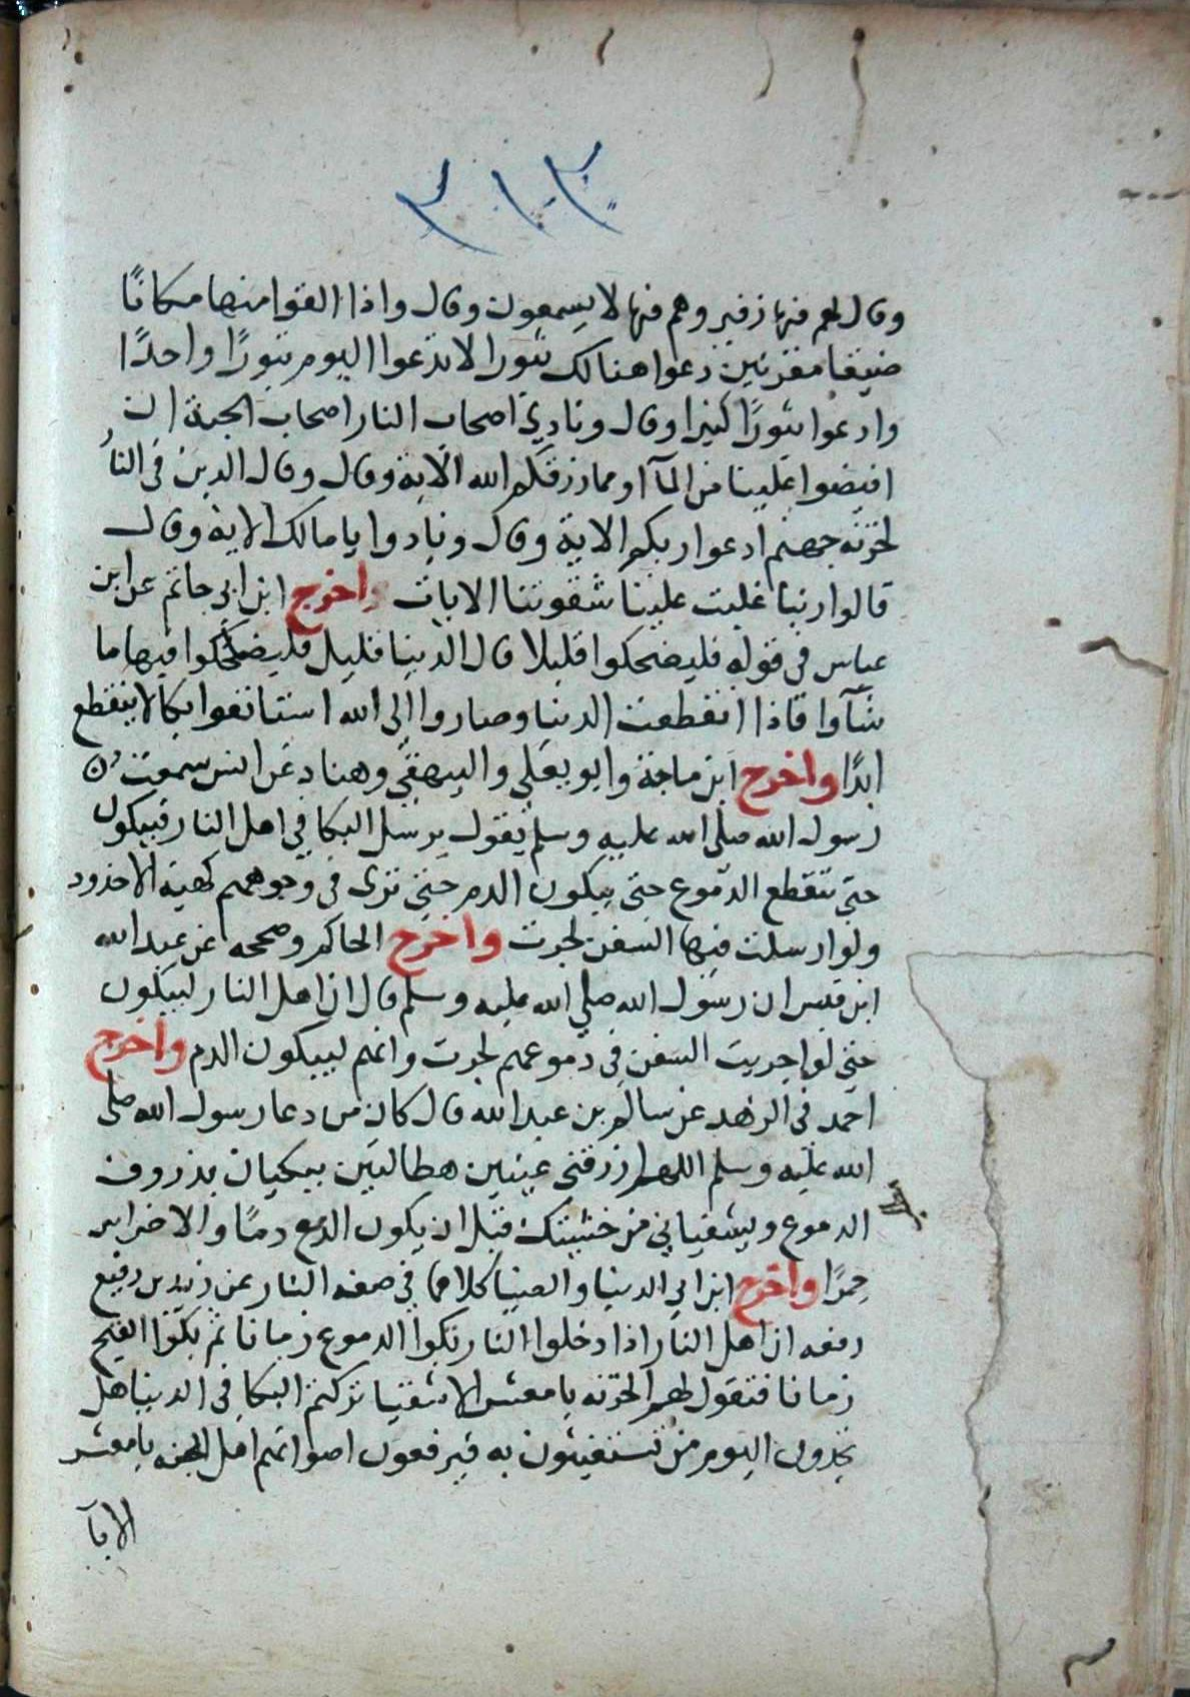 ٣١٣
وقال لهم فيها زفير وهم فيها لا يسمعون وقال واذا القوا منها مكانًا
ضيقا مقرنين دعوا هنالك ثبورا لا تدعوا اليوم ثبورًا واحدًا
وادعوا ثبورًا كثيرا وقال ونادي اصحاب النار اصحاب الجنة ان
افيضوا علينا من المآ او مما رزقكم الله الاية وقال وقال الذين في النار
لخزنة جهنم ادعوا ربكم الاية وقال ونادوا يا مالك الاية وقال
قالوا ربنا غلبت علينا شقوتنا الايات واخرج ابن ابي حاتم عن ابن
عباس في قوله فليضحكوا قليلا قال الدنيا قليل فليضحكوا فيها ما
شآوا فاذا انقطعت الدنيا وصاروا الى الله استانفوا بكا لا ينقطع
ابدًا واخرج ابن ماجة وابو يعلي والبيهقي وهناد عن انس سمعت
رسول الله صلى الله عليه وسلم يقول يرسل البكا في اهل النار فيبكون
حتي تنقطع الدموع حتى يبكون الدم حتي ترى في وجوههم كهيئة الاخدود
ولو ارسلت فيها السفن لجرت واخرج الحاكم وصححه عن عبد الله
ابن قيس ان رسول الله صلي الله عليه وسلم قال ان اهل النار ليبكون
حتى لو اجريت السفن في دموعهم لجرت وانهم ليبكون الدم واخرج
احمد في الزهد عن سالم بن عبد الله قال كان من دعا رسول الله صلى
الله عليه وسلم اللهم ارزقني عينين هطالتين يبكيان بذروف
الدموع ويشفياني من خشيتك قبل ان يكون الدمع دمًا والاضراس
جمرًا واخرج ابن ابي الدنيا والضيا كلاهما في صفة النار عن زيد بن رفيع
رفعه ان اهل النار اذا دخلوا النار بكوا الدموع زمانا ثم بكوا القيح
زمانا فتقول لهم الخزنة يا معشر الاشقيا تركتم البكا في الدنيا هل
تجدون اليوم من تستغيثون به فيرفعون اصواتهم اهل الجنه يا معشر
الابآ